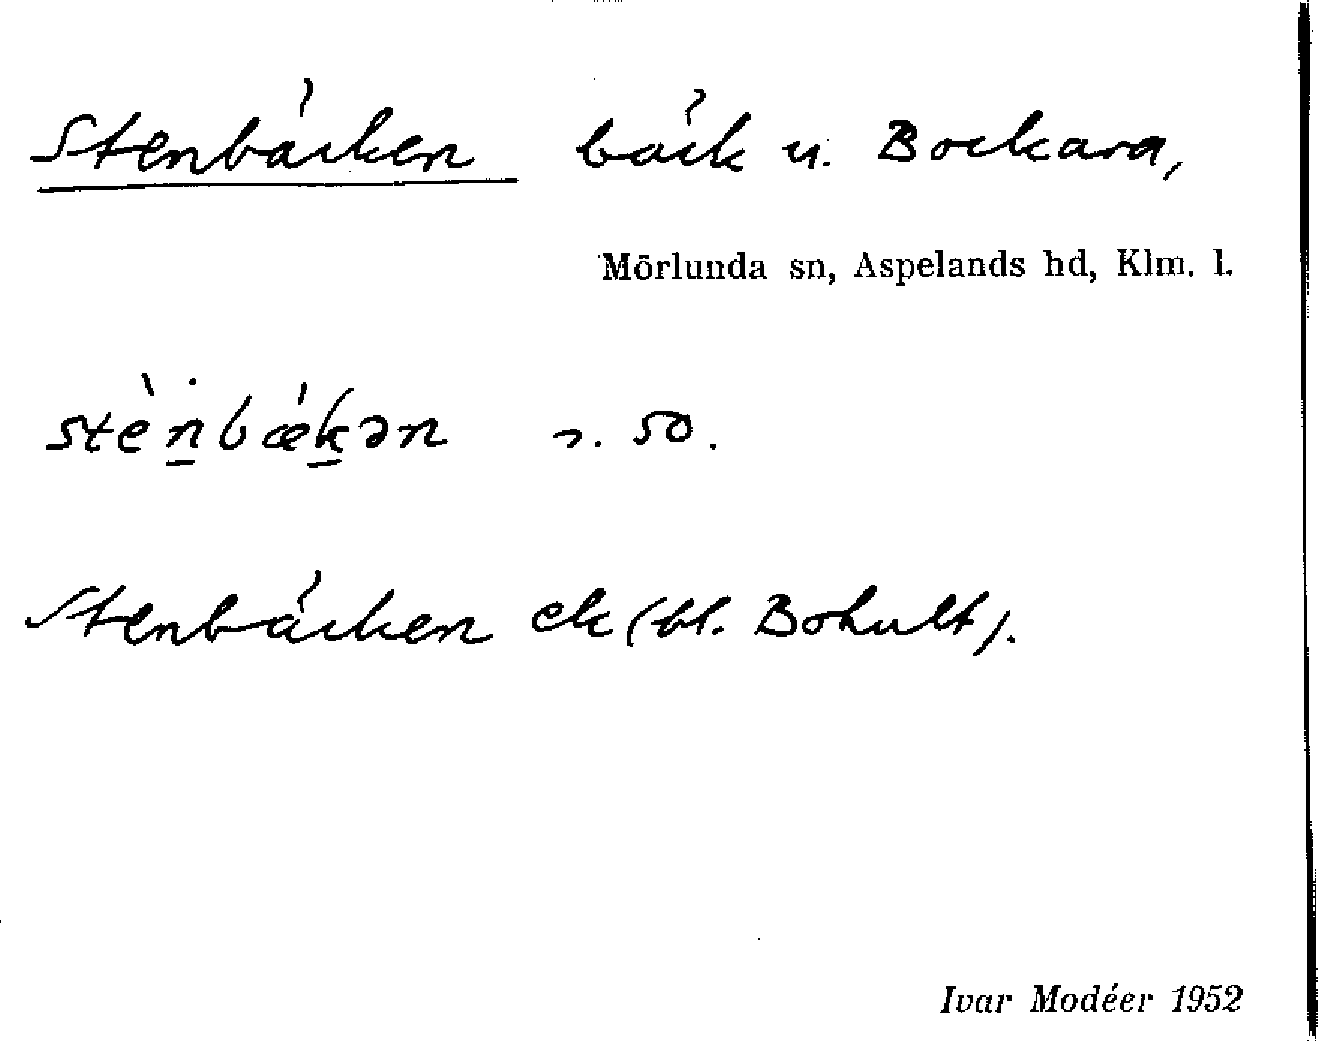 Stenbäcken bäck u. Bockara,
Mörlunda sn, Aspelands hd, Klm. l.
stèṉbǽḵən s. 50.
Stenbäcken ek (bl. Bohult).
Ivar Modéer 1952